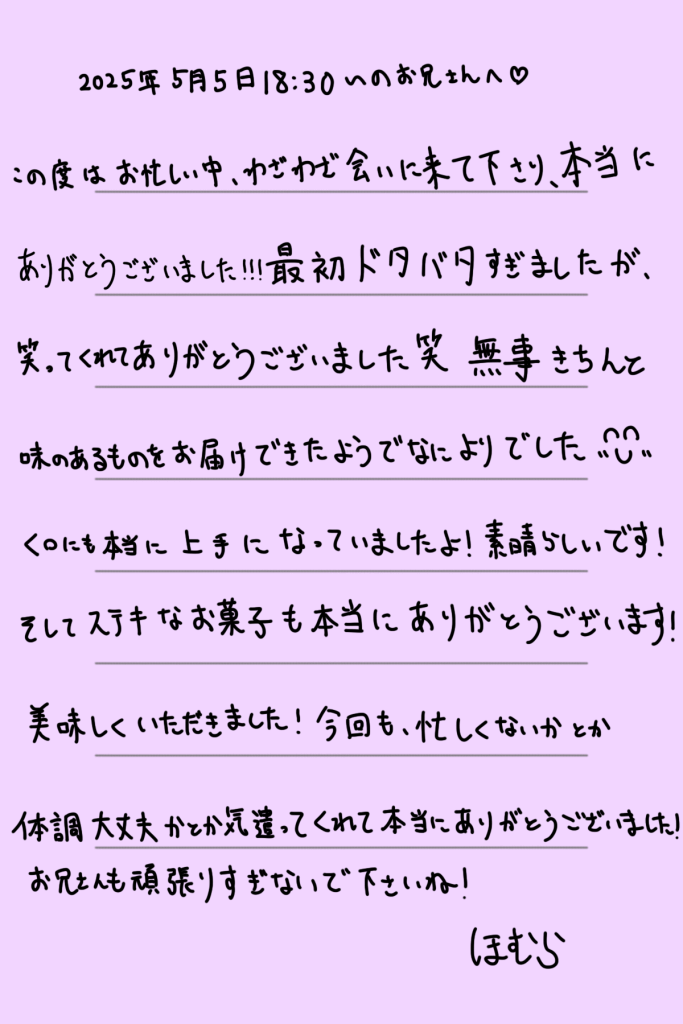 2025年5月5日18:30〜のお兄さんへ♡
この度はお忙しい中、わざわざ会いに来て下さり、本当に
ありがとうございました!!!最初ドタバタすぎましたが、
笑ってくれてありがとうございました笑 無事きちんと
味のあるものをお届けできたようでなによりでした
く〇にも本当に上手になっていましたよ!素晴らしいです!
そしてステキなお菓子も本当にありがとうございます!
美味しくいただきました!今回も、忙しくないかとか
体調大丈夫かとか気遣ってくれて本当にありがとうございました!
お兄さんも頑張りすぎないで下さいね!
ほむら